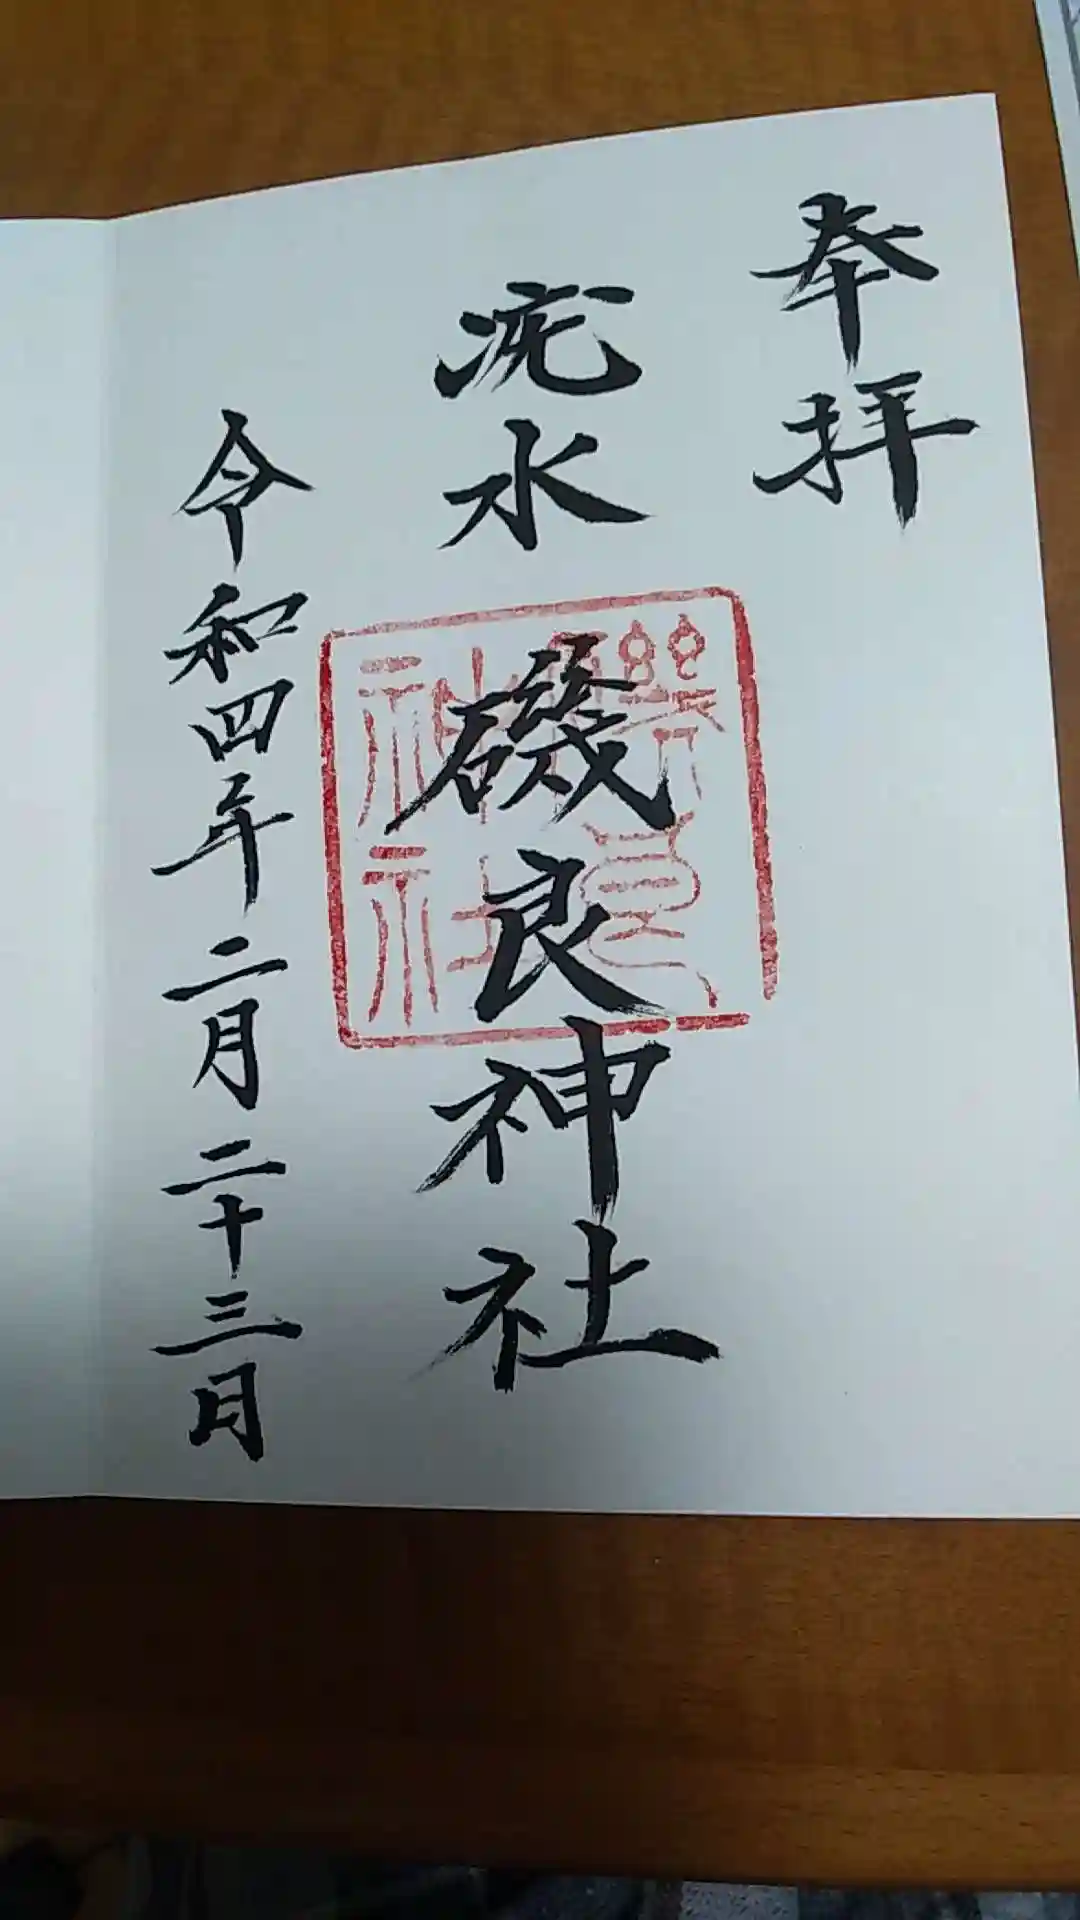 奉拝
疣水
磯良神社
令和四年二月二十三日
磯良神社